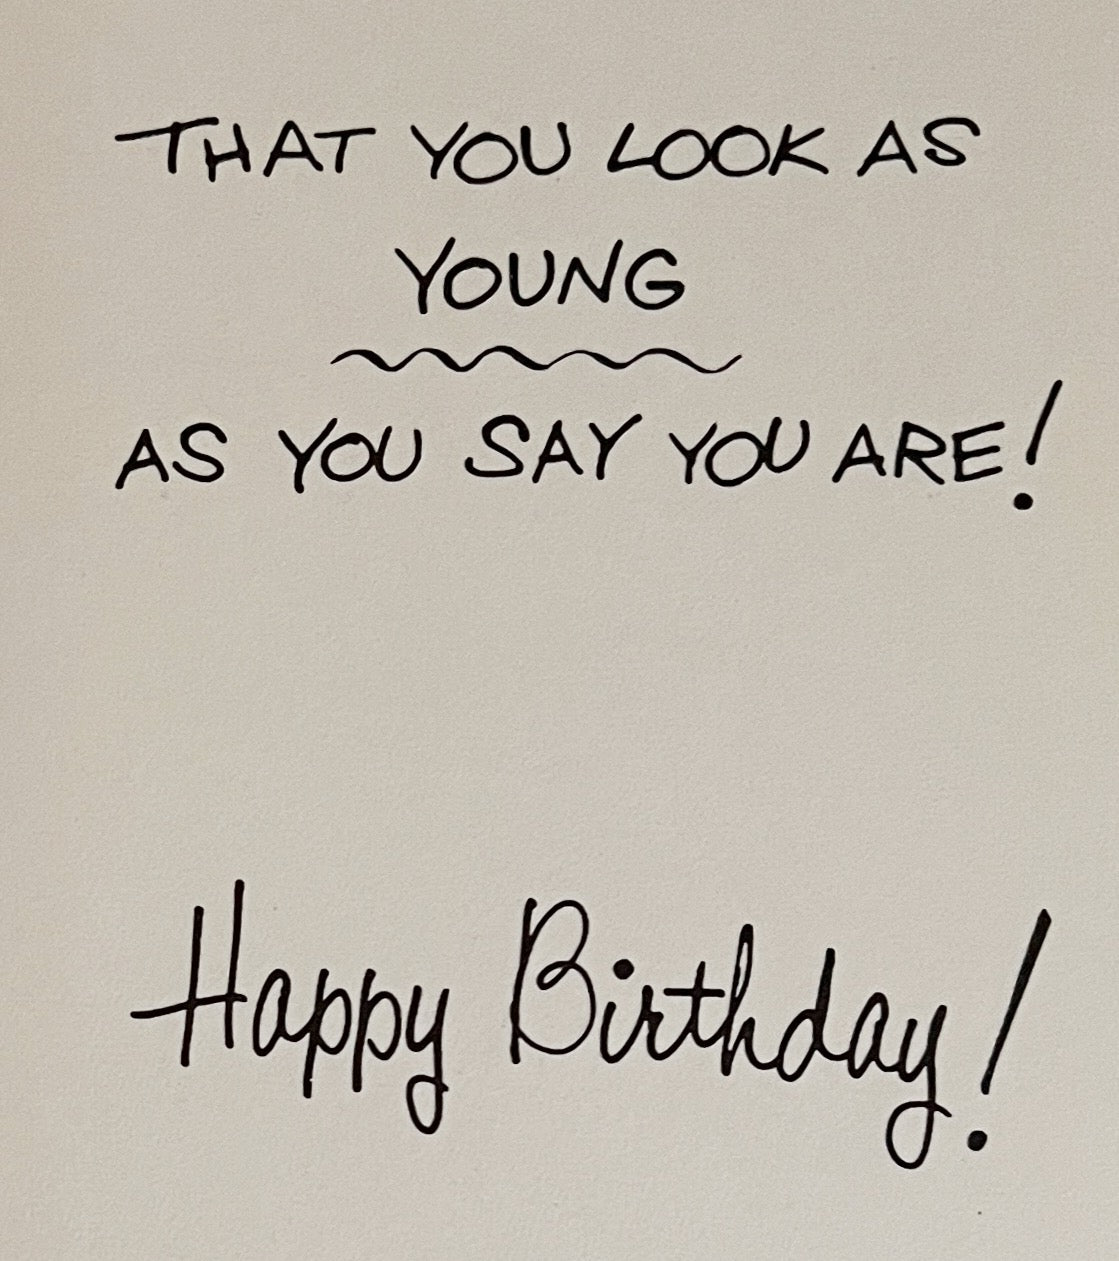 THAT YOU LOOK AS
YOUNG
AS YOU SAY YOU ARE!
Happy Birthday!